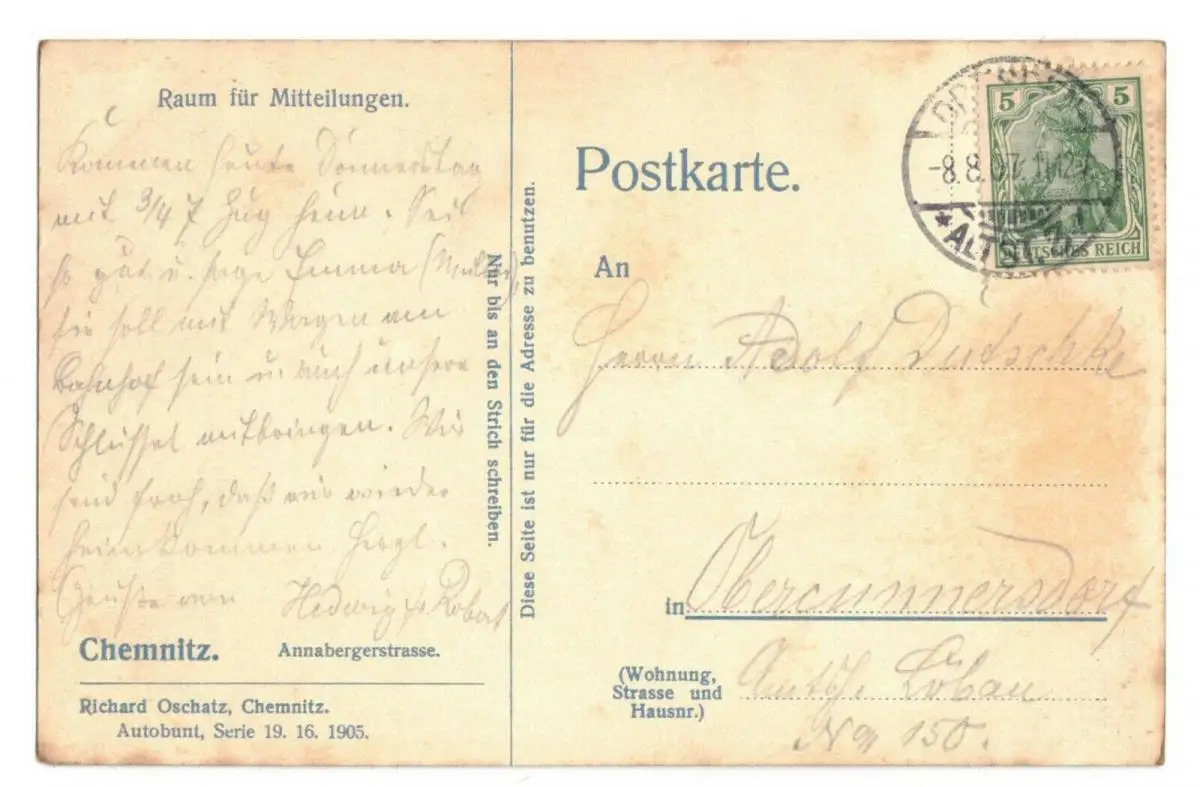 Raum für Mitteilungen.
Kommen heute Donnerstag
mit 3/4 7 Zug heim. Seit
so gut u. sage Emma
sie soll mit Wagen am
Bahnhof sein u. auch unsere
Schlüssel mitbringen. Wir
sind froh, daß wir wieder
heimkommen. Herzl.
Grüße von Hedwig u. Robert
Chemnitz. Annabergerstrasse.
Richard Oschatz, Chemnitz.
Autobunt, Serie 19. 16. 1905.
Nur bis an den Strich schreiben.
Diese Seite ist nur für die Adresse zu benutzen.
Postkarte.
5 5
DEUTSCHES REICH
-8.8.07. 11-12
*ALTST.
An
Herrn Adolf Dutschke
in Obercunnersdorf
(Wohnung,
Strasse und
Hausnr.)
Amtsh. Löbau
No 150.